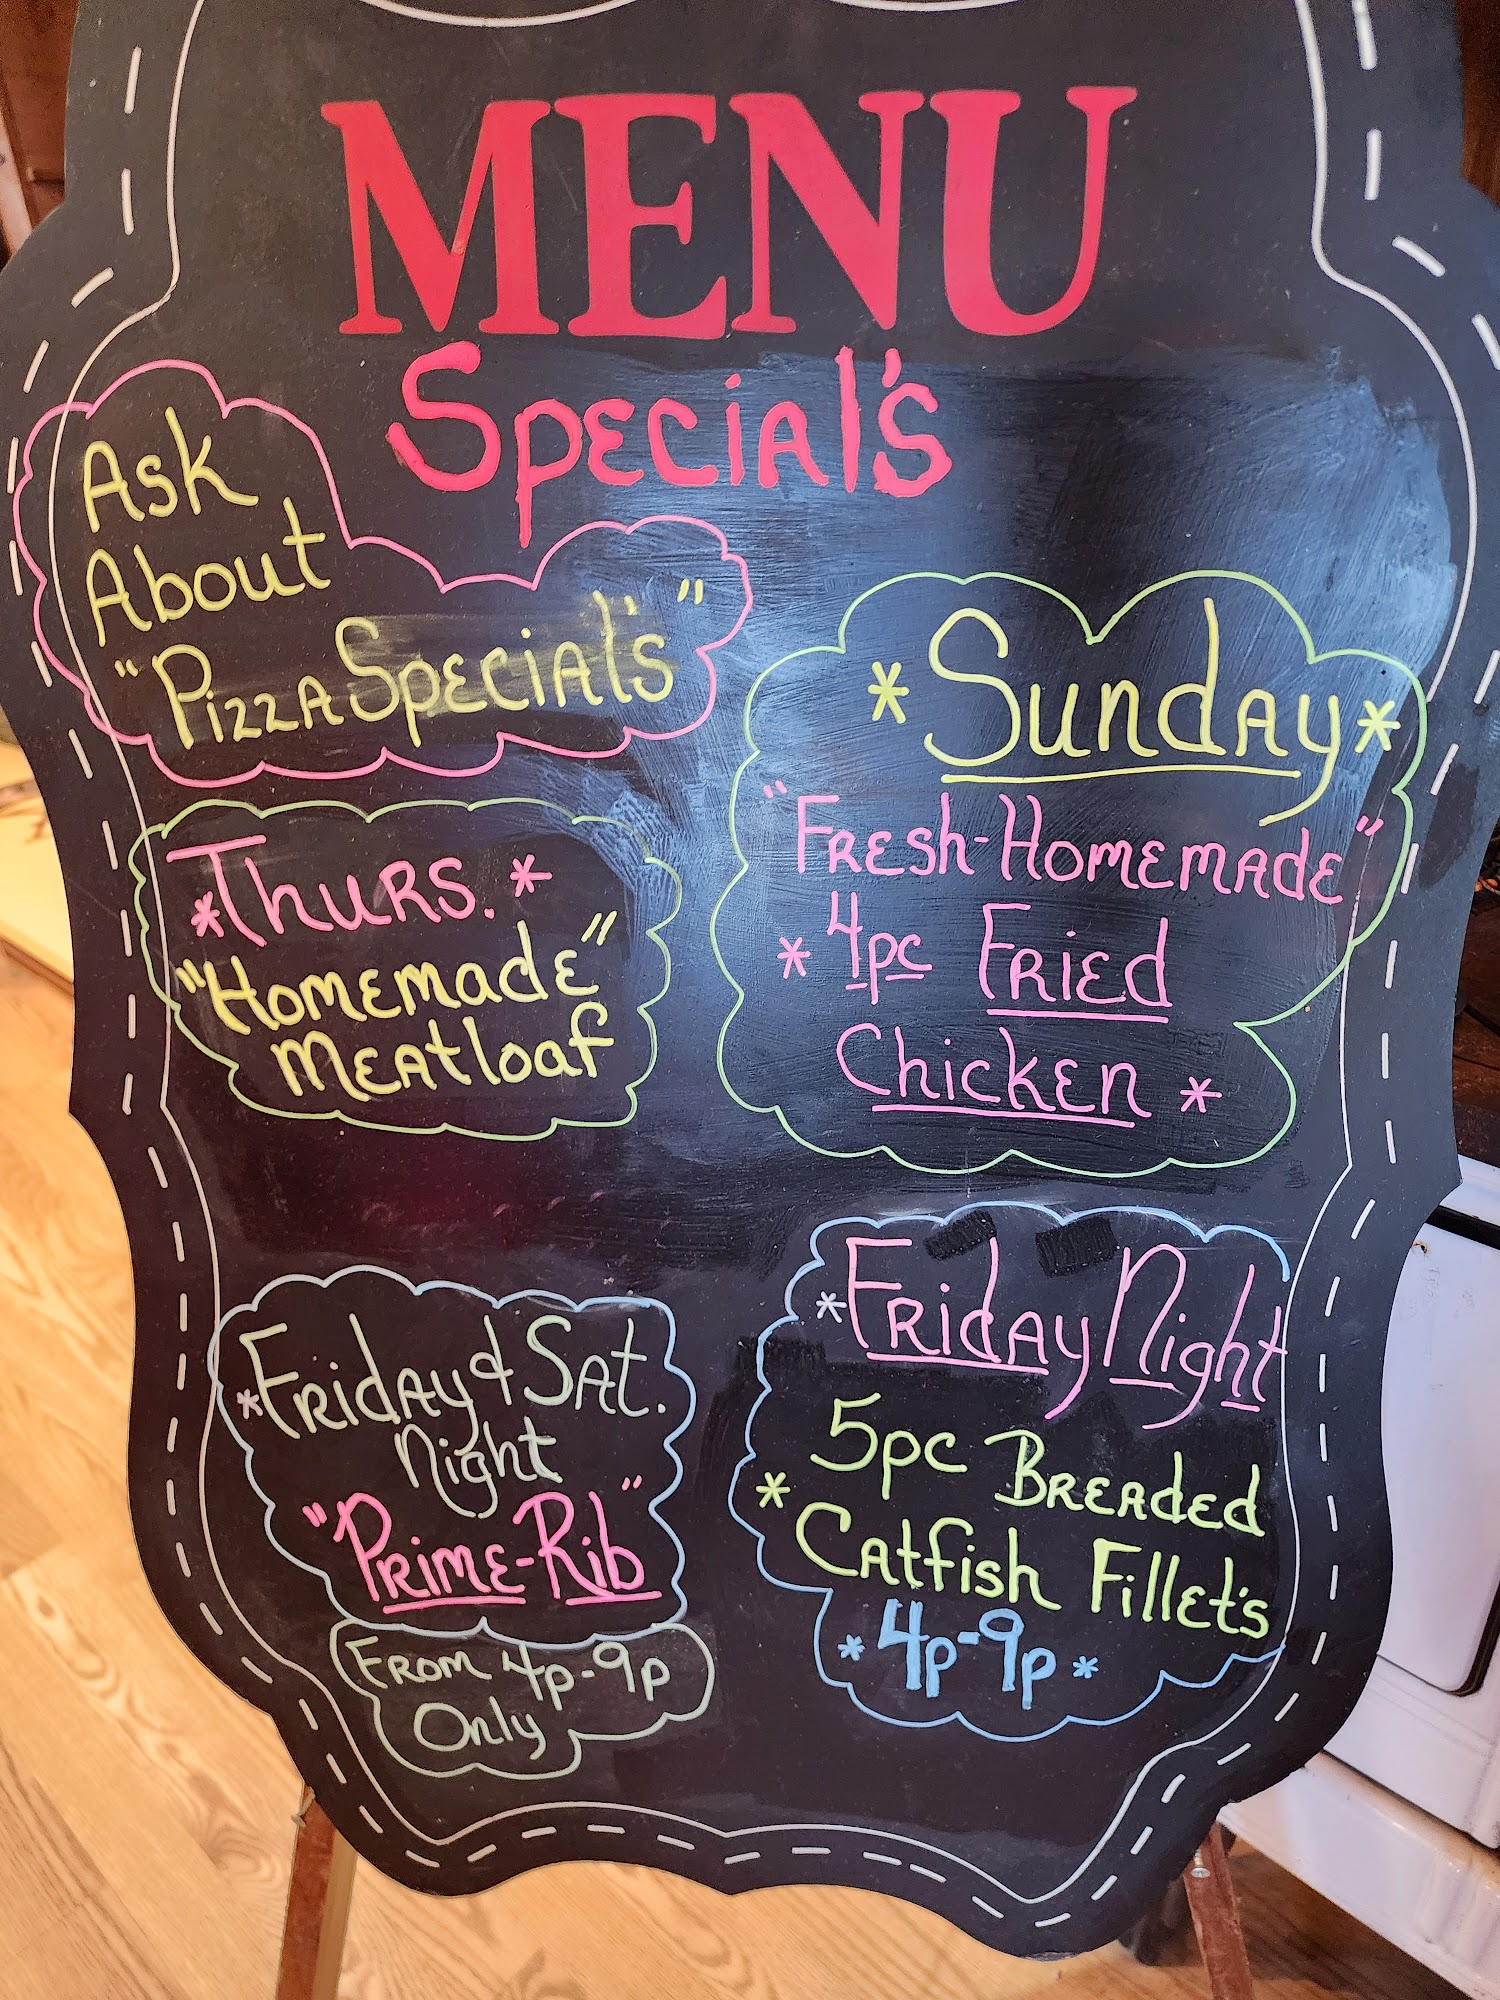 MENU
Special's
Ask
About
"Pizza Special's"
*Thurs.*
"Homemade"
Meatloaf
*Sunday*
"Fresh-Homemade"
*4pc Fried
Chicken*
*Friday & Sat.
Night
"Prime-Rib"
From 4p-9p
Only
*Friday Night
5pc Breaded
*Catfish Fillet's
*4p-9p*